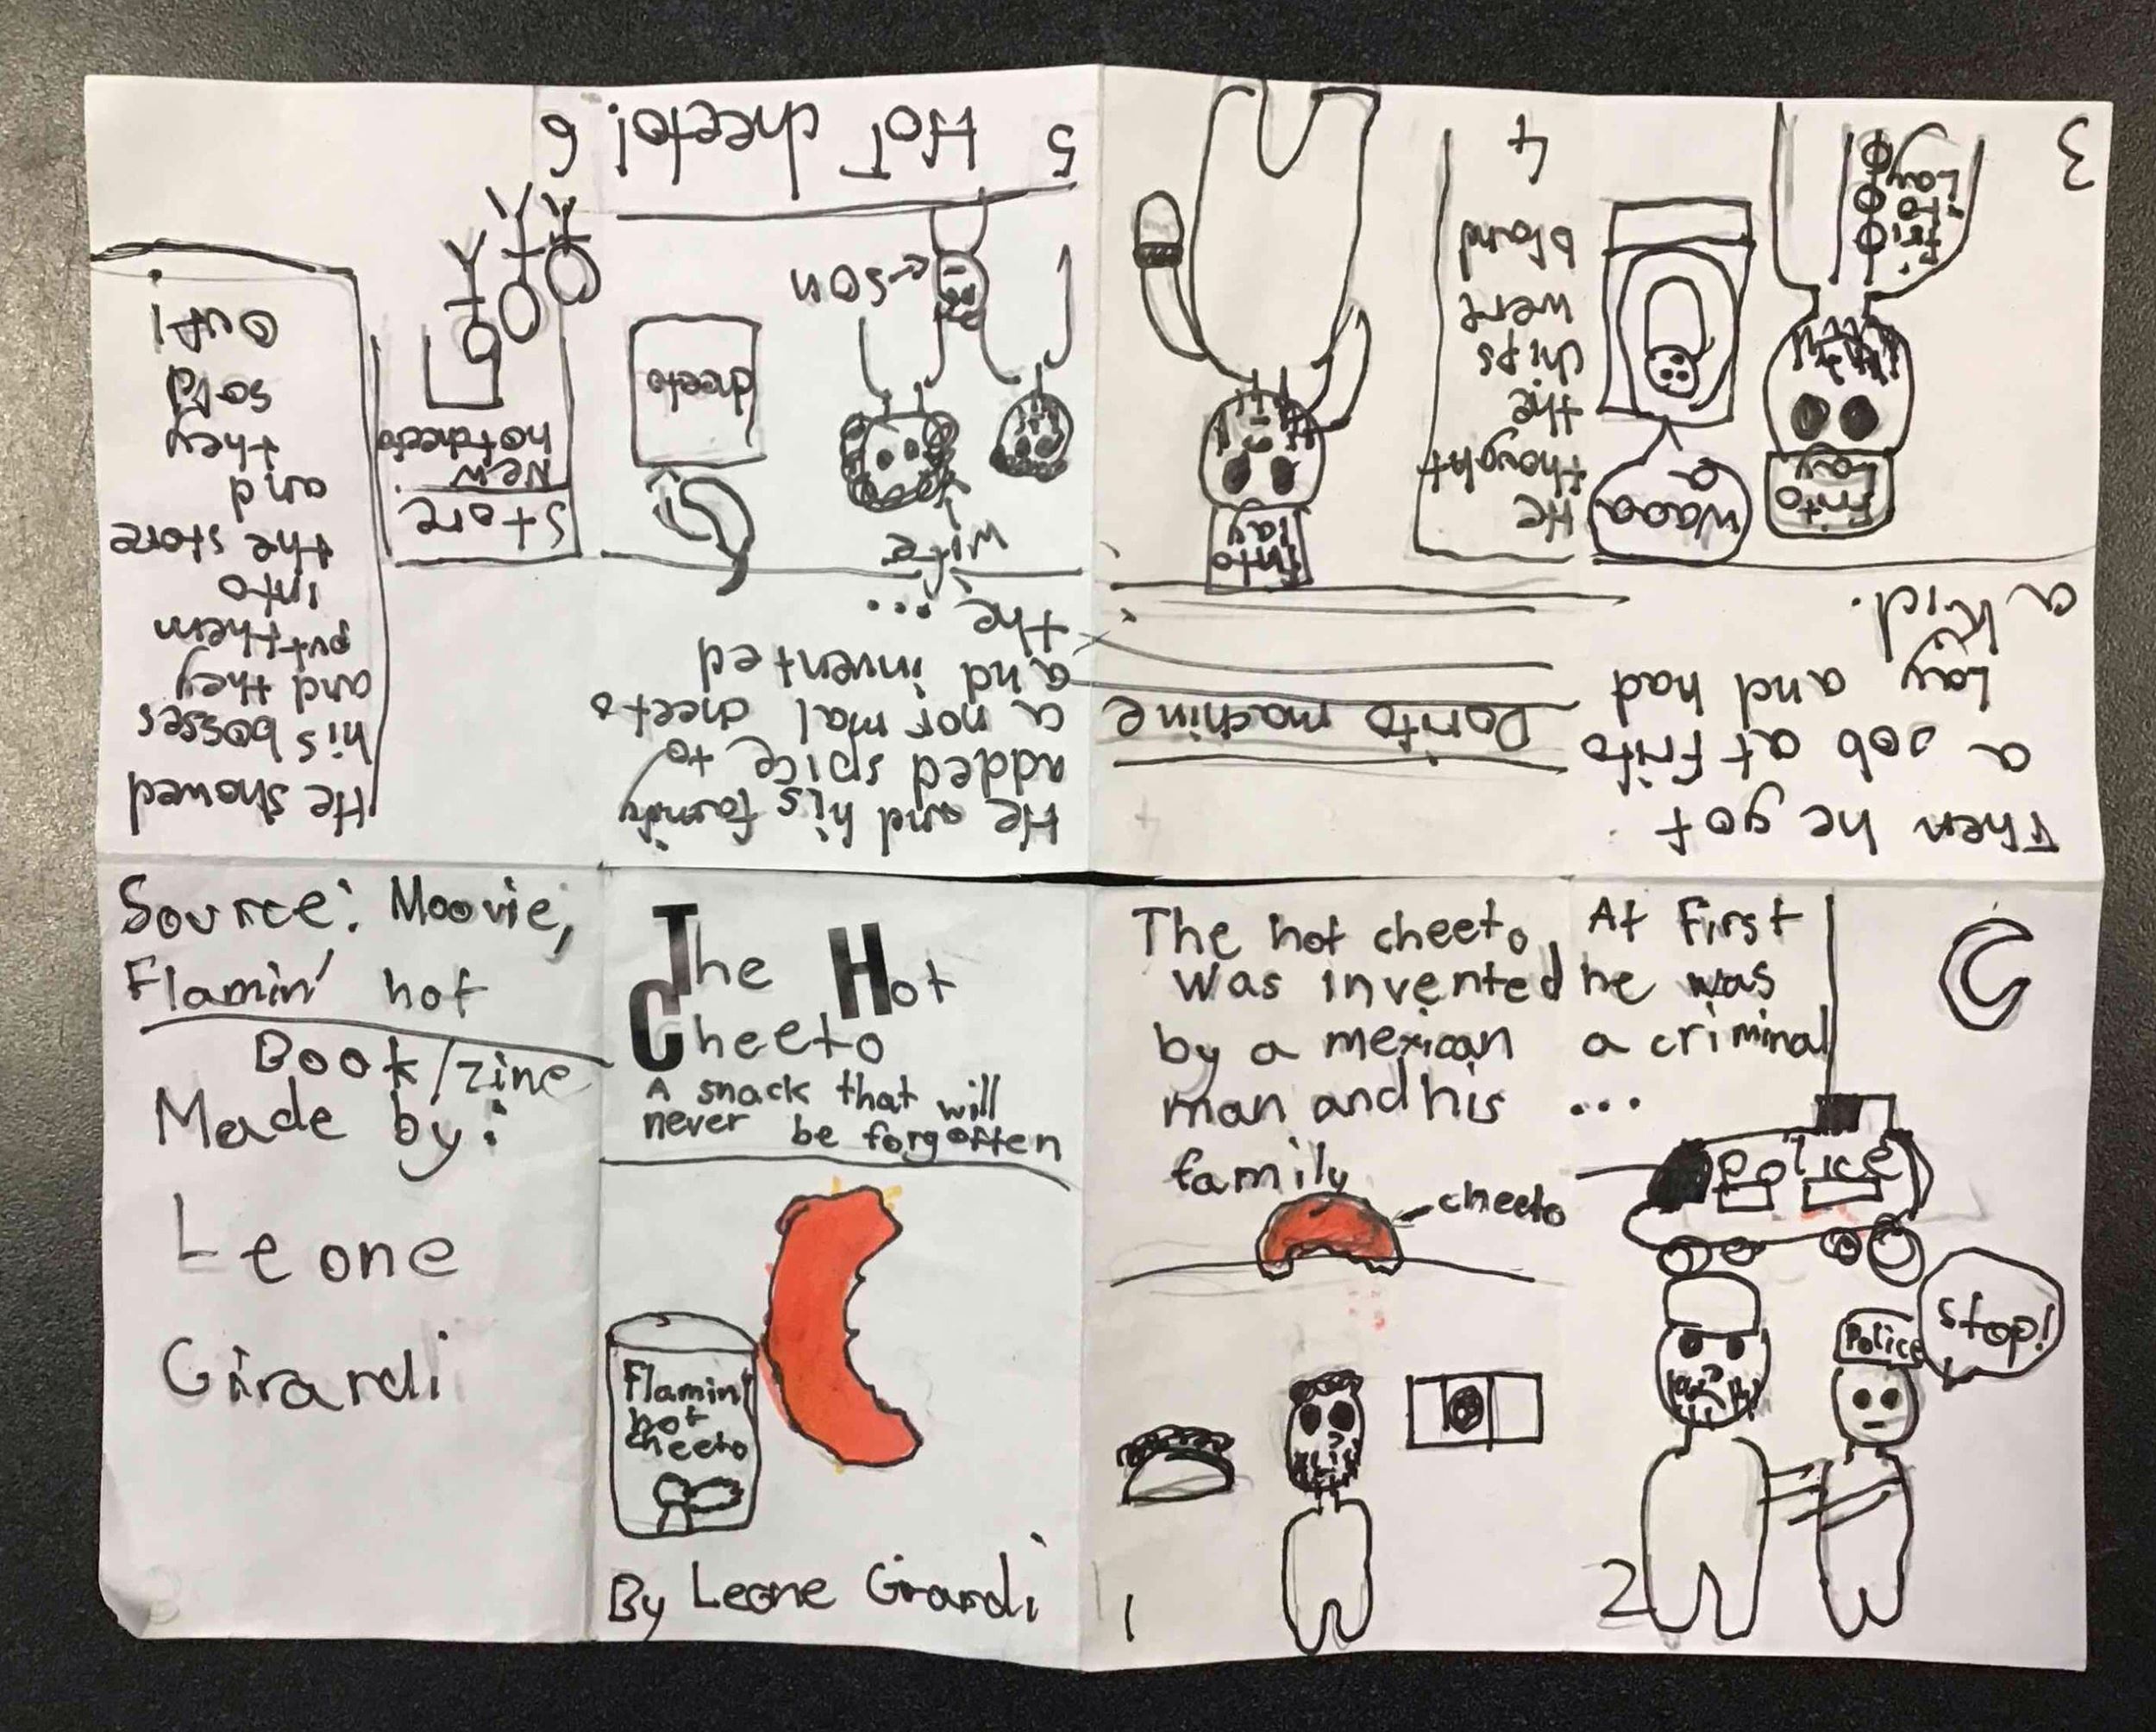 The Hot
Cheeto
A snack that will
never be forgotten
Flamin'
hot
cheeto
By Leone Girardi
The hot cheeto
was invented
by a mexican
man and his
family
cheeto
1
At First
he was
a criminal
...
police
Police
stop!
2
Then he got
a Job at Frito
Lay and had
a kid.
Frito
Lay
waaa
a
Frito
Lay
3
Dorito machine
Frito
lay
He
thought
the
chips
were
bland
4
He and his family
added spice to
a normal cheeto
and invented
the ...
wife
cheeto
son
5 Hot cheeto!
He showed
his bosses
and they
put them
into
the store
and
they
sold
out!
store
New
hot cheeto
6
Source: Moovie,
Flamin' hot
Book/zine
Made by:
Leone
Girardi